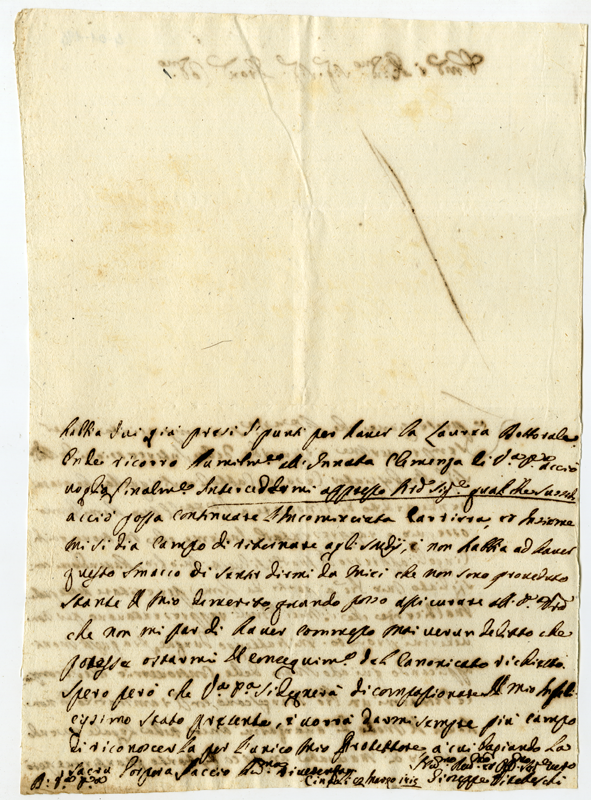 habbia qui già presi i punti per haver la Laurea Dottorale.
Onde ricorro humilm.te all'Innata Clemenza di V.ra P.tà acciò
voglia finalm.te Intercedermi appresso
acciò possa continuare l'Incominciata Carriera, et Insieme
mi si dia campo di ritornare agli studij, e non habbia ad haver
questo smacco di sentir dirmi da Miei che non sono proveduto
stante il mio demerito, quando posso assicurare all
che non mi par di haver commesso mai verun delitto che
potesse ostarmi il conseguim.to del Canonicato richiesto.
Spero però che V.ra P.tà si degnerà di compassionare il mio Infeli-
cissimo stato presento, e vorrà darmi sempre più campo
di riconoscerla per l'unico mio Protettore, a cui baciando la
Sacra Porpora faccio
Cingoli 12 Marzo 1715
Di V.ra P.tà Giuseppe